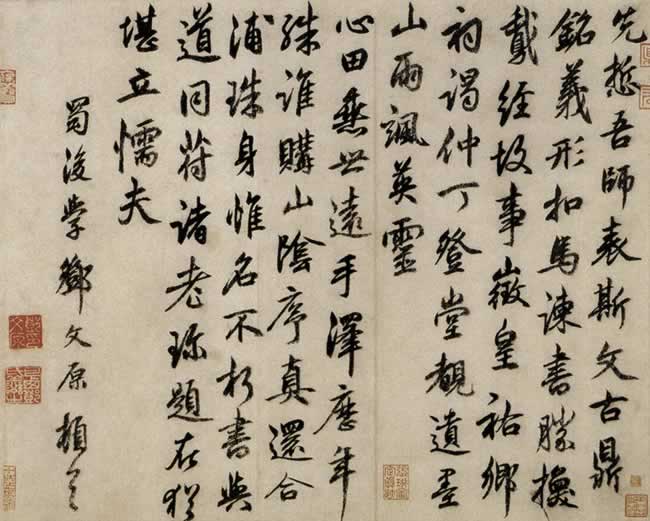 先悊吾師表斯文古鼎
銘義形扣馬諫書勝換
鵞經故事徵皇祐鄉
祠謁仲丁登堂覩遺墨
山雨颯英靈
心田垂世遠手澤歷年
殊誰購山陰序真還合
浦珠身惟名不朽書與
道同符諸老珎題在猶
堪立懦夫
蜀後學鄧文原頓首